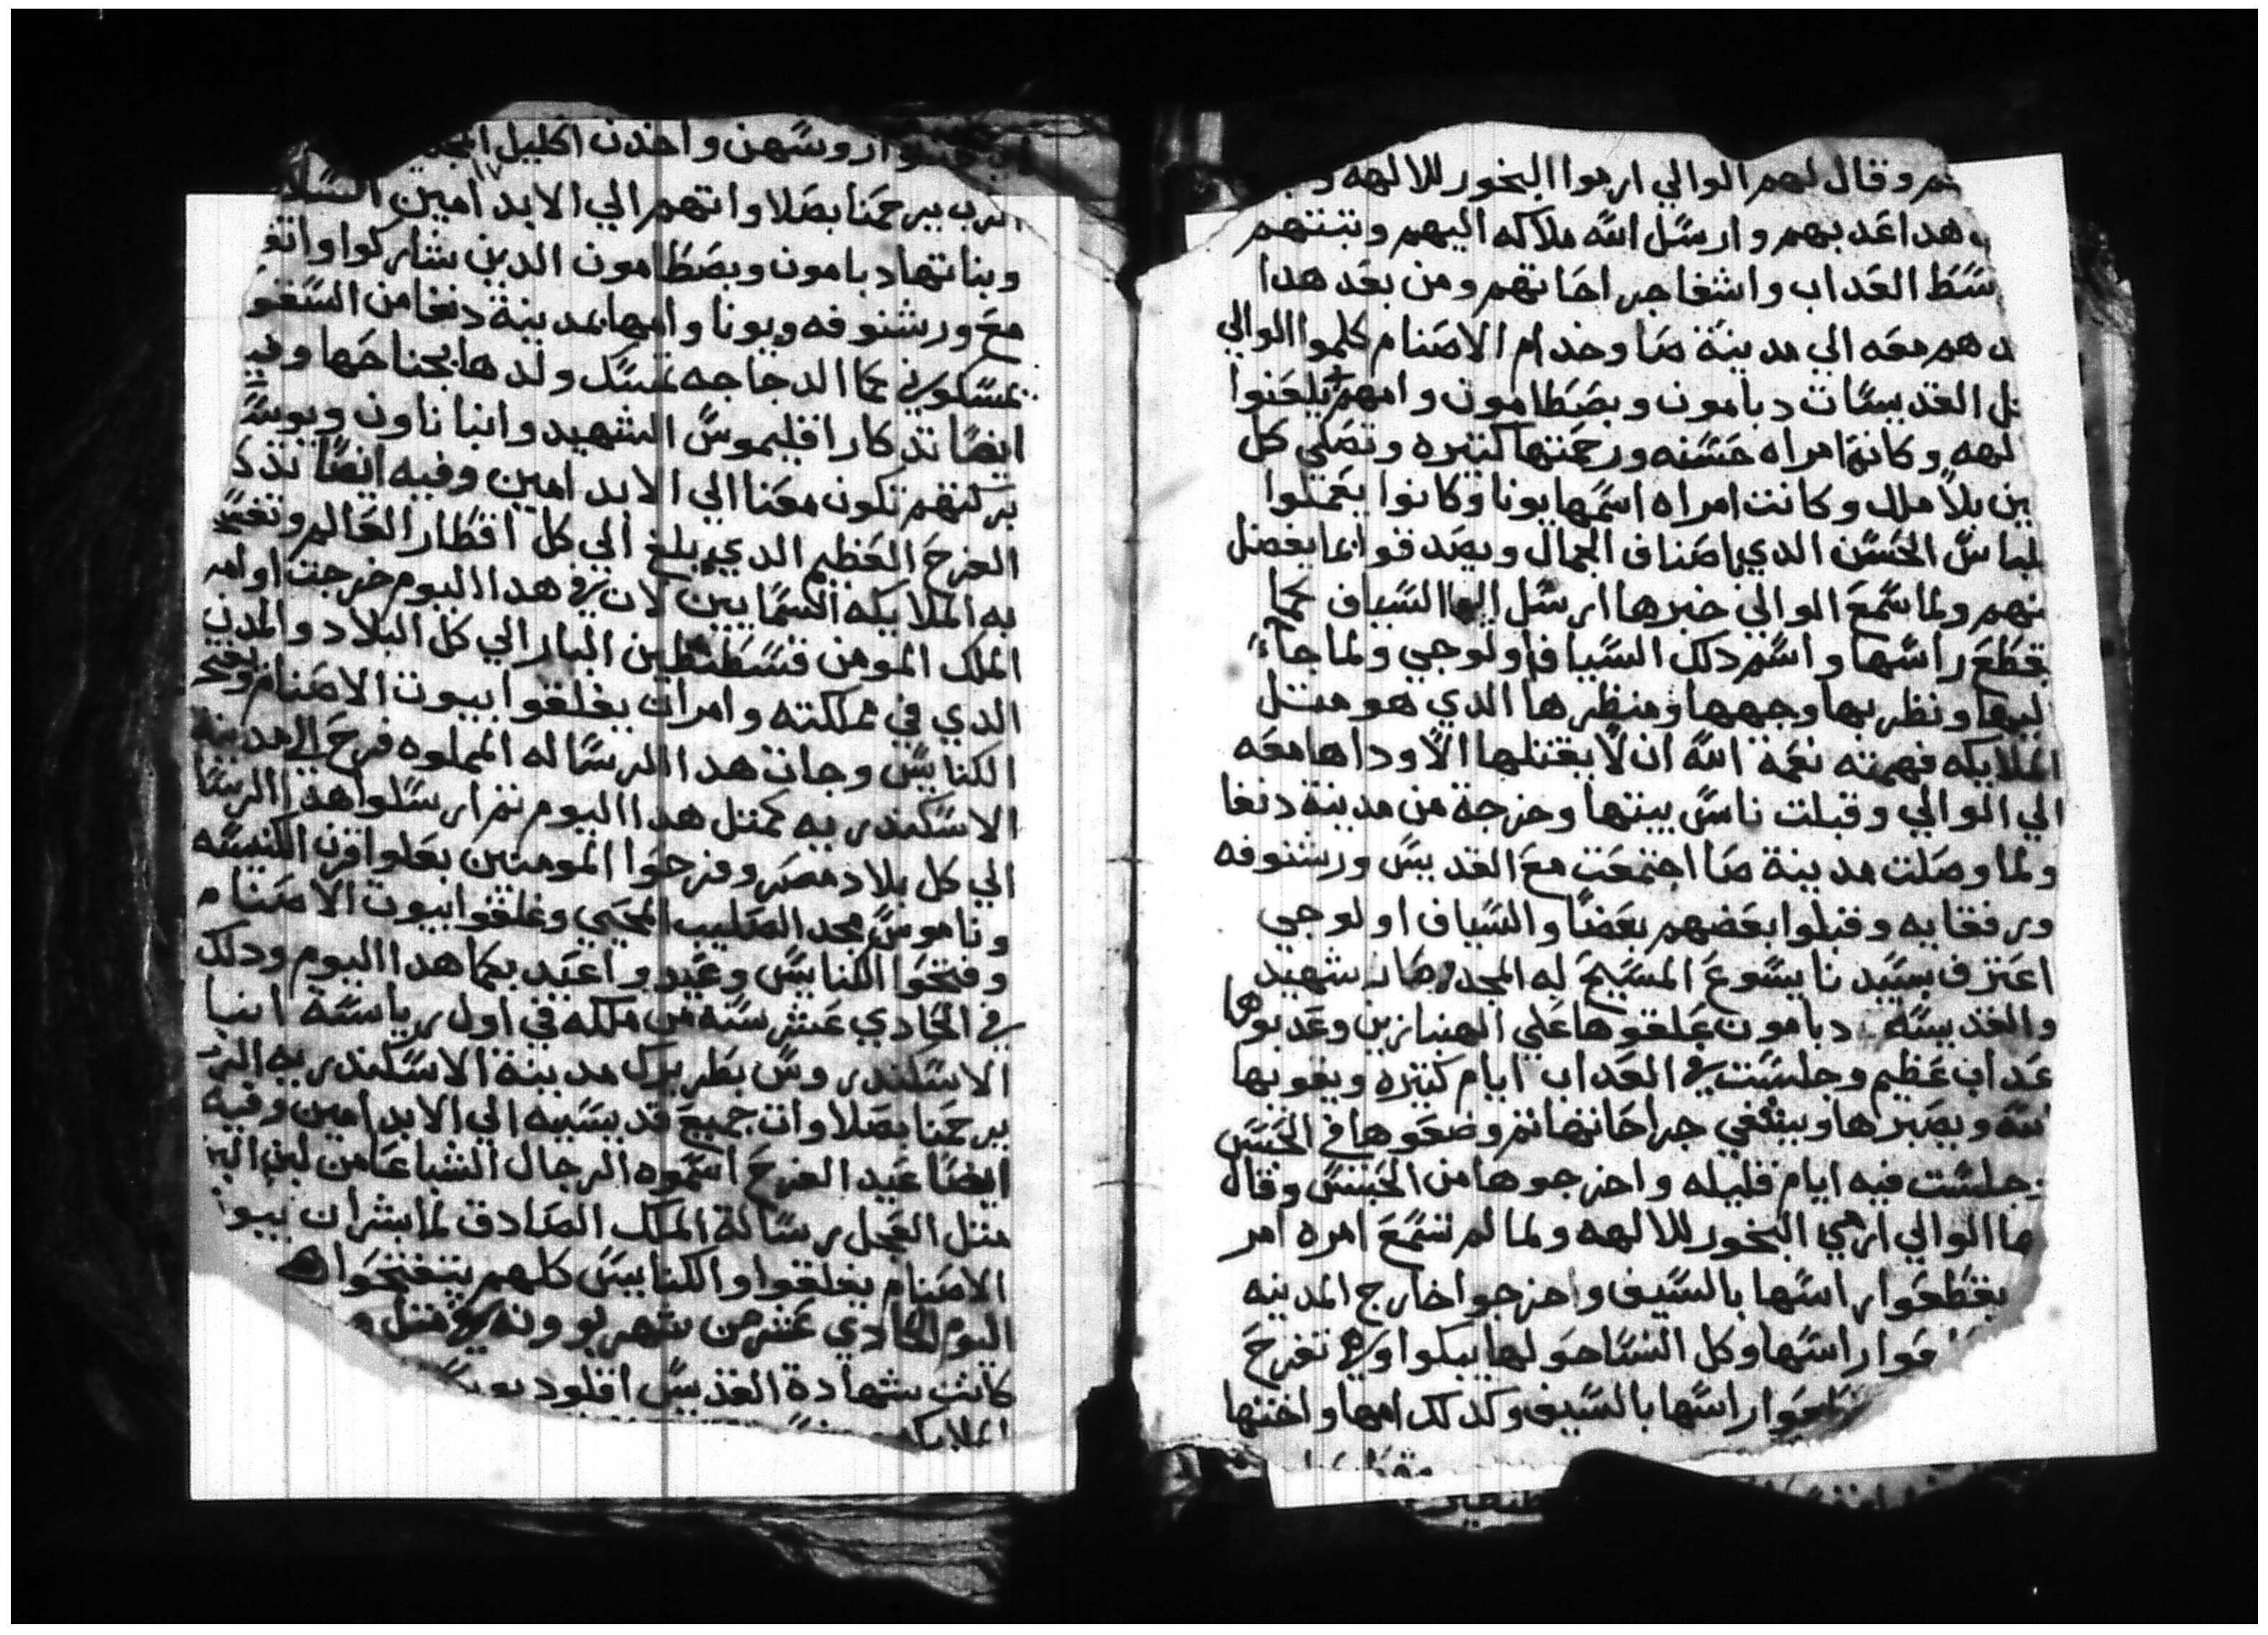 وقال لهم الوالي ارموا البخور للالهه
هدا اعدبهم وارسل الله ملاكه اليهم وتبتهم
العداب واشفا جراحاتهم ومن بعد هدا
معه الي مدينة صا وخدام الاصنام كلموا الوالي
القديسات دبامون وبصطامون وامهم يلعنوا
وكانة امراه حسنه ورحمتها كتيره وتصلي كل
بلا ملل وكانت امراه اسمها يونا وكانوا يعملوا
الحسن الدي اصناف الجمال ويصدقوا بما يفضل
ولما سمع الوالي خبرها ارسل اليها السياف كما
راسها واسم دلك السياف اولوجي ولما جاء
ونظر بها وجهها ومنظرها الدي هو متل
الملايكه فهمته نعمة الله ان لا يقتلها الا وداها معه
الي الوالي وقبلت ناس بيتها وخرجة من مدينة دنفا
ولما وصلت مدينة صا اجتمعت مع القديس ورشنوفه
ورفقايه وقبلوا بعضهم بعضا والسياف اولوجي
اعترف بسيدنا يسوع المسيح له المجد وصار شهيد
والقديسه دبامون علقوها علي الهنبازين وعدبوها
عداب عظيم وجلست في العداب ايام كتيره ويقويها
ويصبرها ويشفي جراحاتها تم وضعوها في الحبس
جلست فيه ايام قليله واخرجوها من الحبس وقال
الوالي ارمي البخور للالهه ولما لم تسمع امره امر
يقطعوا راسها بالسيف واخرجوا خارج المدينه
راسها وكل النسا حولها يبكوا وهي تفرح
راسها بالسيف وكدلك امها واختها
روسهن واخدن اكليل
الرب يرحمنا بصلاواتهم الي الابد امين
وبناتها دبامون وبصطامون الدين شاركوا
مع ورشنوفه ويونا وامها بمدينة دنفا من
كما الدجاجه تمسك ولدها بجناحها
ايضا تدكار اقليموس الشهيد وانبا ناون
بركتهم تكون معنا الي الابد امين وفيه ايضا
الفرح العظيم الدي بلغ الي كل اقطار العالم
به الملايكه السمايين لان في هدا اليوم خرجت
الملك المومن قسطنطين البار الي كل البلاد والمدن
الدي في مملكته وامر ان يغلقوا بيوت الاصنام
الكنايس وجات هدا الرساله المملوه فرح الي مدينة
الاسكندريه كمتل هدا اليوم تم ارسلوا هدا
الي كل بلاد مصر وفرحوا المومنين بعلوا قرن الكنيسه
وناموس مجد الصليب المحيي وغلقوا بيوت الاصنام
وفتحوا الكنايس وعيد واعيد بكما هدا اليوم ودلك
في الحادي عشر سنه من ملكه في اول رياسة انبا
الاسكندروس بطريرك مدينة الاسكندريه
يرحمنا بصلاوات جميع قديسيه الي الابد امين وفيه
ايضا عيد الفرح اسموه الرجال الشباعا من لبن
متل العجل رسالة الملك الصادق لما بشر ان
الاصنام يغلقوا والكنايس كلهم يتفتحوا
اليوم الحادي عشر من شهر بوونه في متل
كانت شهادة القديس